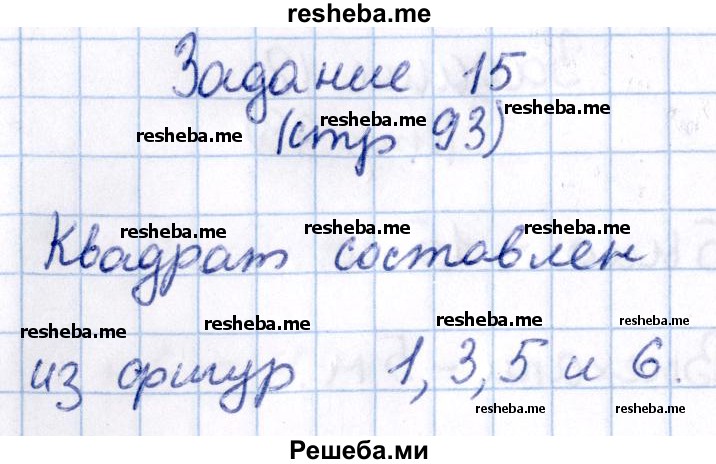 resheba.me
Задание 15
resheba.me resheba.me resheba.me
(стр 93)
resheba.me resheba.me resheba.me
Квадрат составлен
resheba.me resheba.me resheba.me resheba.me
из фигур 1, 3, 5 и 6.
resheba.me resheba.me
Решеба.ми